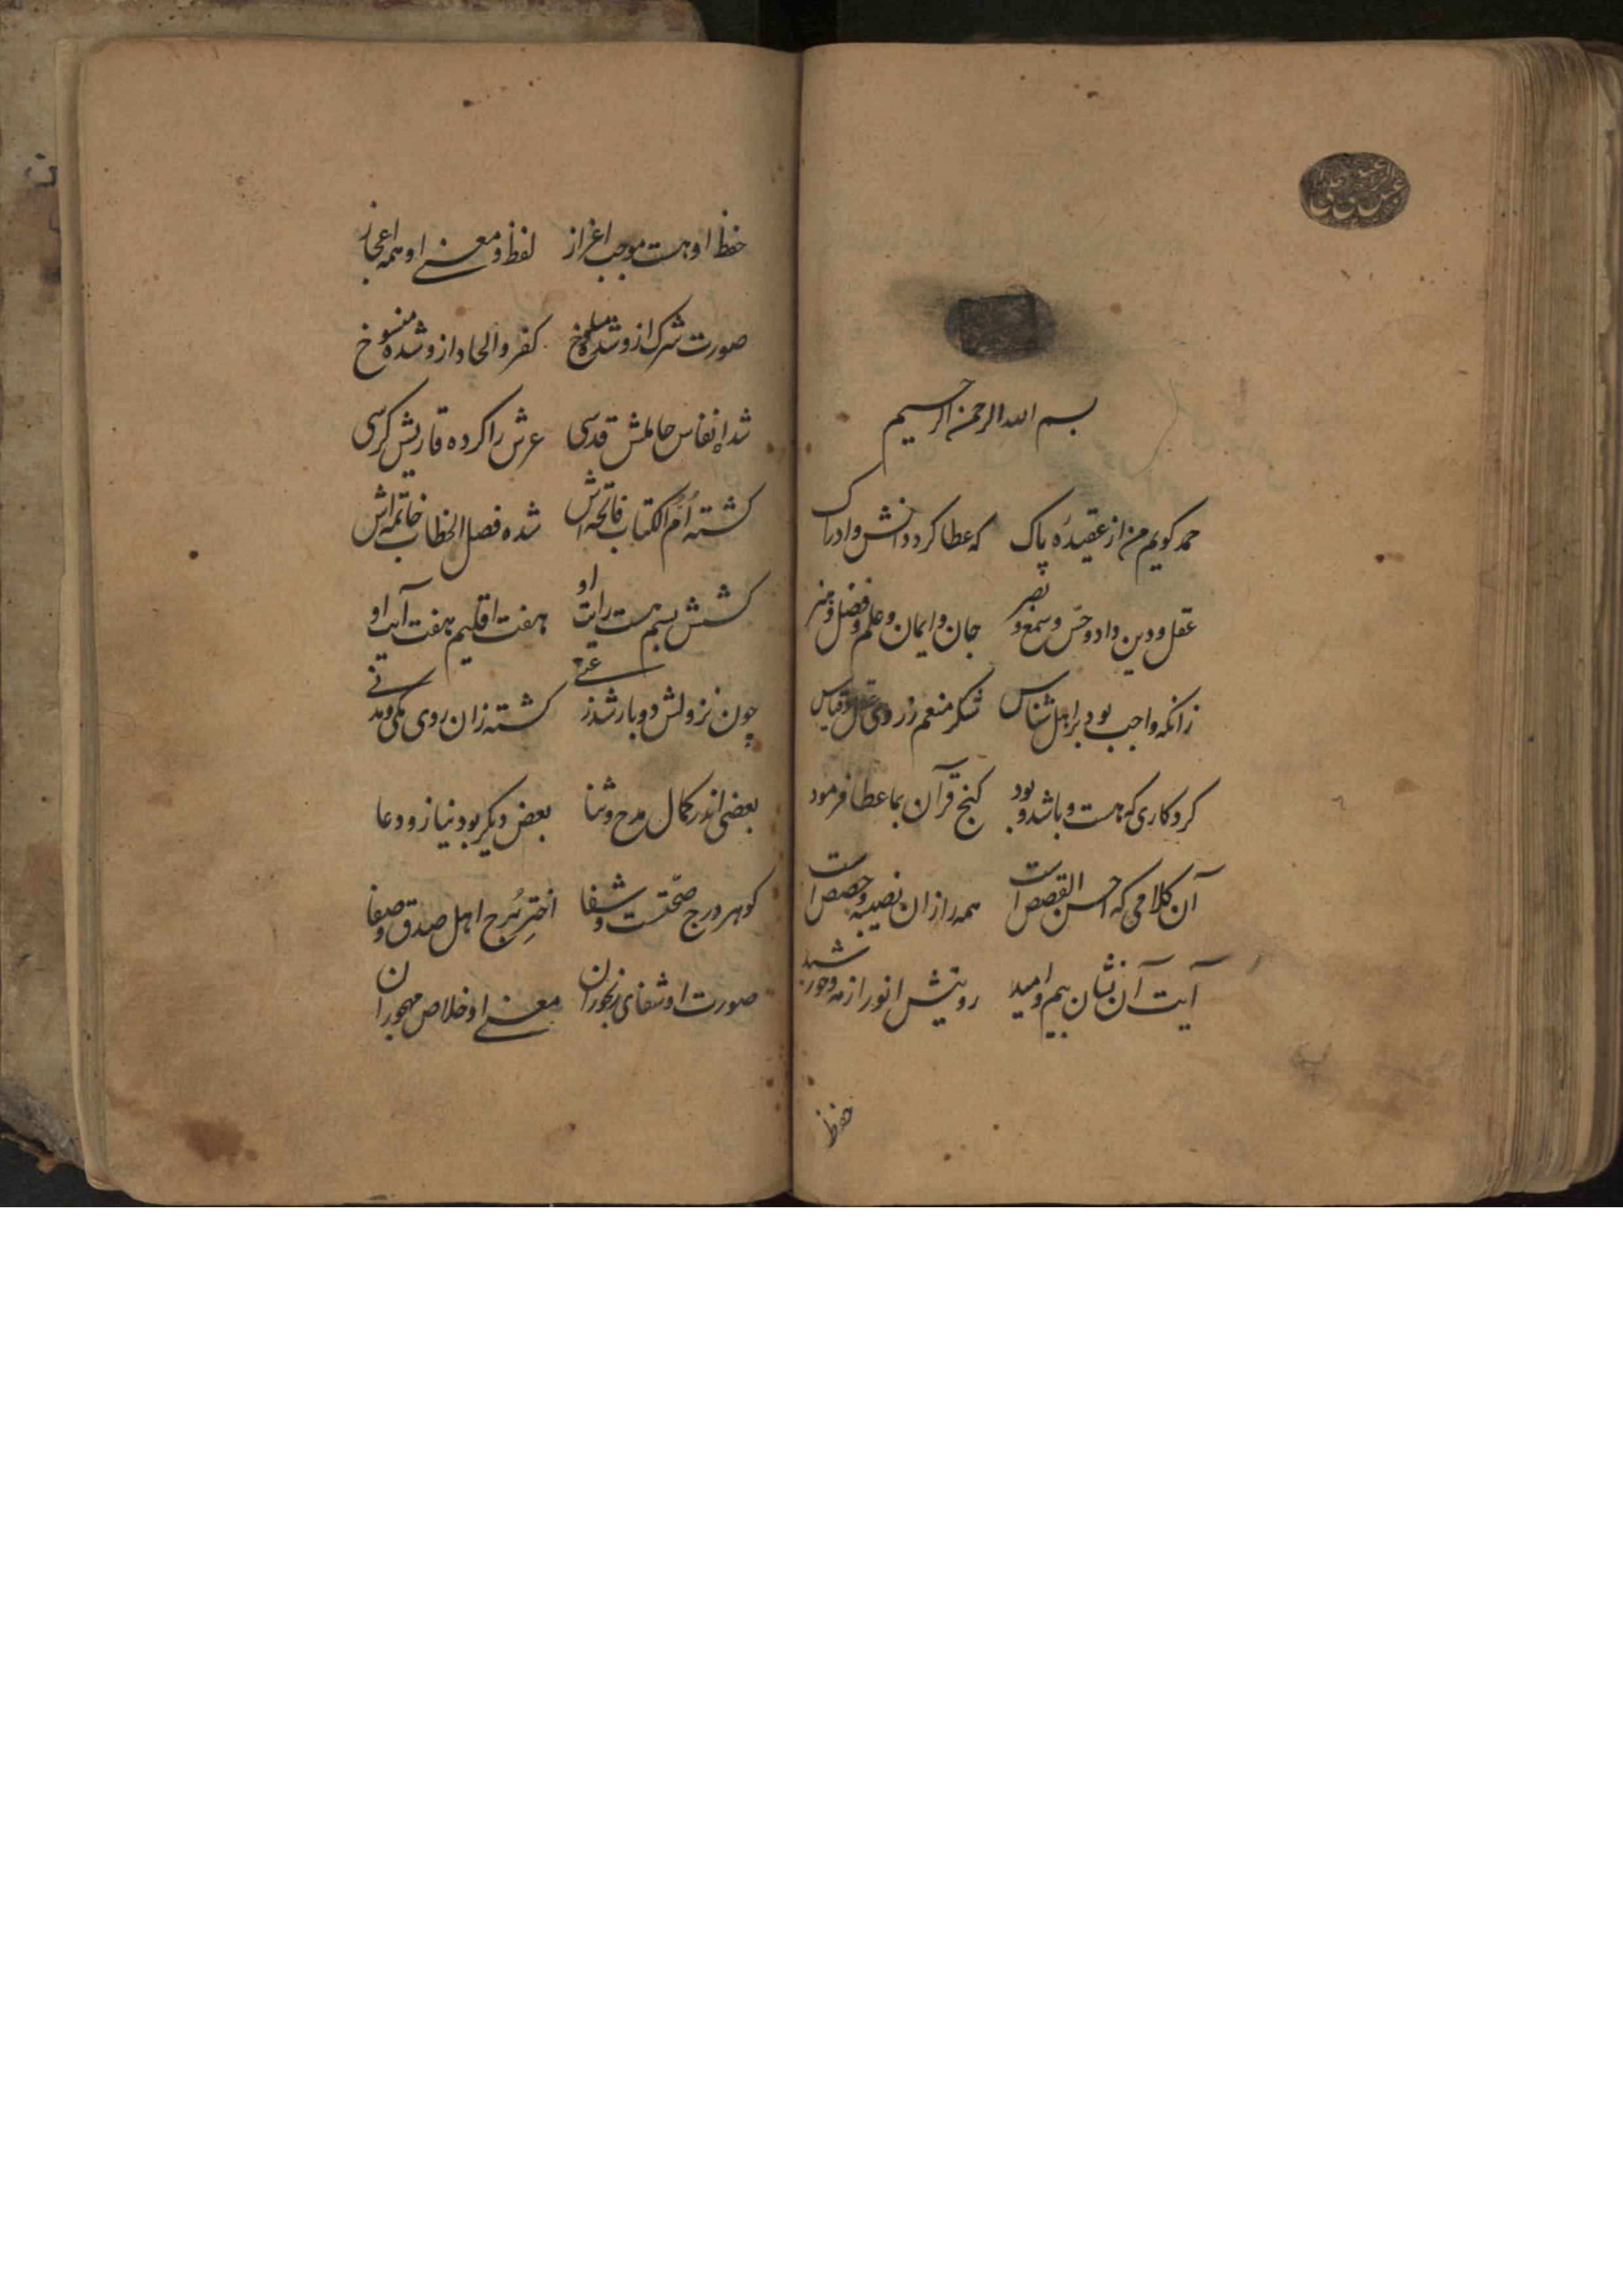 بسم الله الرحمن الرحیم
حمد کویم من از عقیدهٔ پاک که عطا کرد دانش و ادراک
عقل و دین داد و حسّ و سمع و بصر جان و ایمان و علم و فضل و هنر
زانکه واجب بود بر اهل شناس شکر منعم ز روی عقل و قیاس
کردکاری که هست و باشد و بود کنج قرآن بما عطا فرمود
آن کلامی که احسن القصص است همه را زان نصیبه و حصص است
آیت آن نشان بیم و امید رویتش انور از مه و خورشید
حفظ
حفظ او هست موجب اعزاز لفظ و معنی او همه اعجاز
صورت شرک ازو شده مسلوخ کفر و الحاد ازو شده منسوخ
شد انفاس حاملش قدسی عرش را کرده قاریش کرسی
کشته اُمّ الکتاب فاتحه‌اش شده فصل الخطاب خاتمه‌اش
کشش بسم هست رایت او هفت اقلیم هفت آیت او
چون نزولش دو بار شد ز کشته زان روی مکی و مدنی
بعضی اندر کمال مدح و ثنا بعض دیکر بود نیاز و دعا
کوهر درج صحّتست و شفا اخترِ بُرج اهل صدق و صفا
صورت او شفای رنجوران معنی او خلاص مهجوران